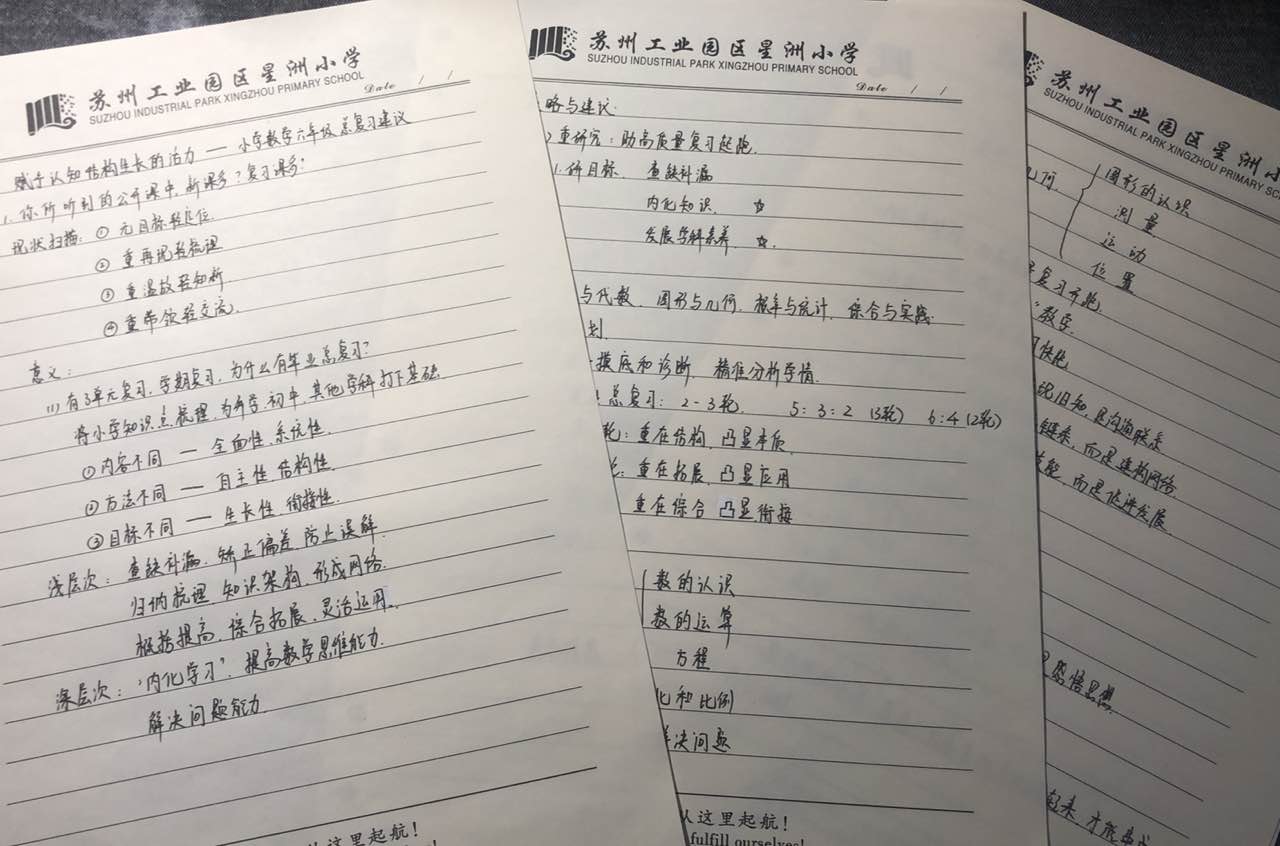 苏州工业园区星洲小学
SUZHOU INDUSTRIAL PARK XINGZHOU PRIMARY SCHOOL
Date / /
赋予认知结构生长的活力 — 小学数学六年级总复习建议
1. 你所听到的公开课中, 新课多? 复习课多?
现状扫描: ① 无目标轻定位
② 重再现轻梳理
③ 重温故轻知新
④ 重带领轻交流.
意义:
(1) 有了单元复习, 学期复习, 为什么有毕业总复习?
将小学知识点梳理, 为升学, 初中, 其他学科打下基础.
① 内容不同 — 全面性, 系统性.
② 方法不同 — 自主性, 结构性.
③ 目标不同 — 生长性, 衔接性.
浅层次: 查缺补漏, 矫正偏差, 防止误解.
归纳梳理, 知识架构, 形成网络.
概括提高, 综合拓展, 灵活运用.
深层次: "内化学习", 提高数学思维能力.
解决问题能力
从这里起航!
苏州工业园区星洲小学
SUZHOU INDUSTRIAL PARK XINGZHOU PRIMARY SCHOOL
Date / /
略与建议.
重研究: 助高质量复习起跑.
1. 研目标. 查缺补漏
内化知识. ☆
发展学科素养. ☆.
与代数, 图形与几何, 概率与统计, 综合与实践
划
摸底和诊断, 精准分析学情.
总复习: 2-3轮. 5:3:2 (3轮) 6:4 (2轮)
轮: 重在结构, 凸显本质
重在拓展, 凸显应用
重在综合 凸显衔接
数的认识
数的运算
方程
比和比例
解决问题
从这里起航!
fulfill ourselves!
苏州工业园区星洲小
SUZHOU INDUSTRIAL PARK XINGZHOU PRIMARY SCH
几何. 图形的认识
测量
运动
位置
复习齐跑.
数学
快跑
旧知, 是沟通联系
链条, 而是建构网络
技能, 而是促进发展
感悟思想.
才能